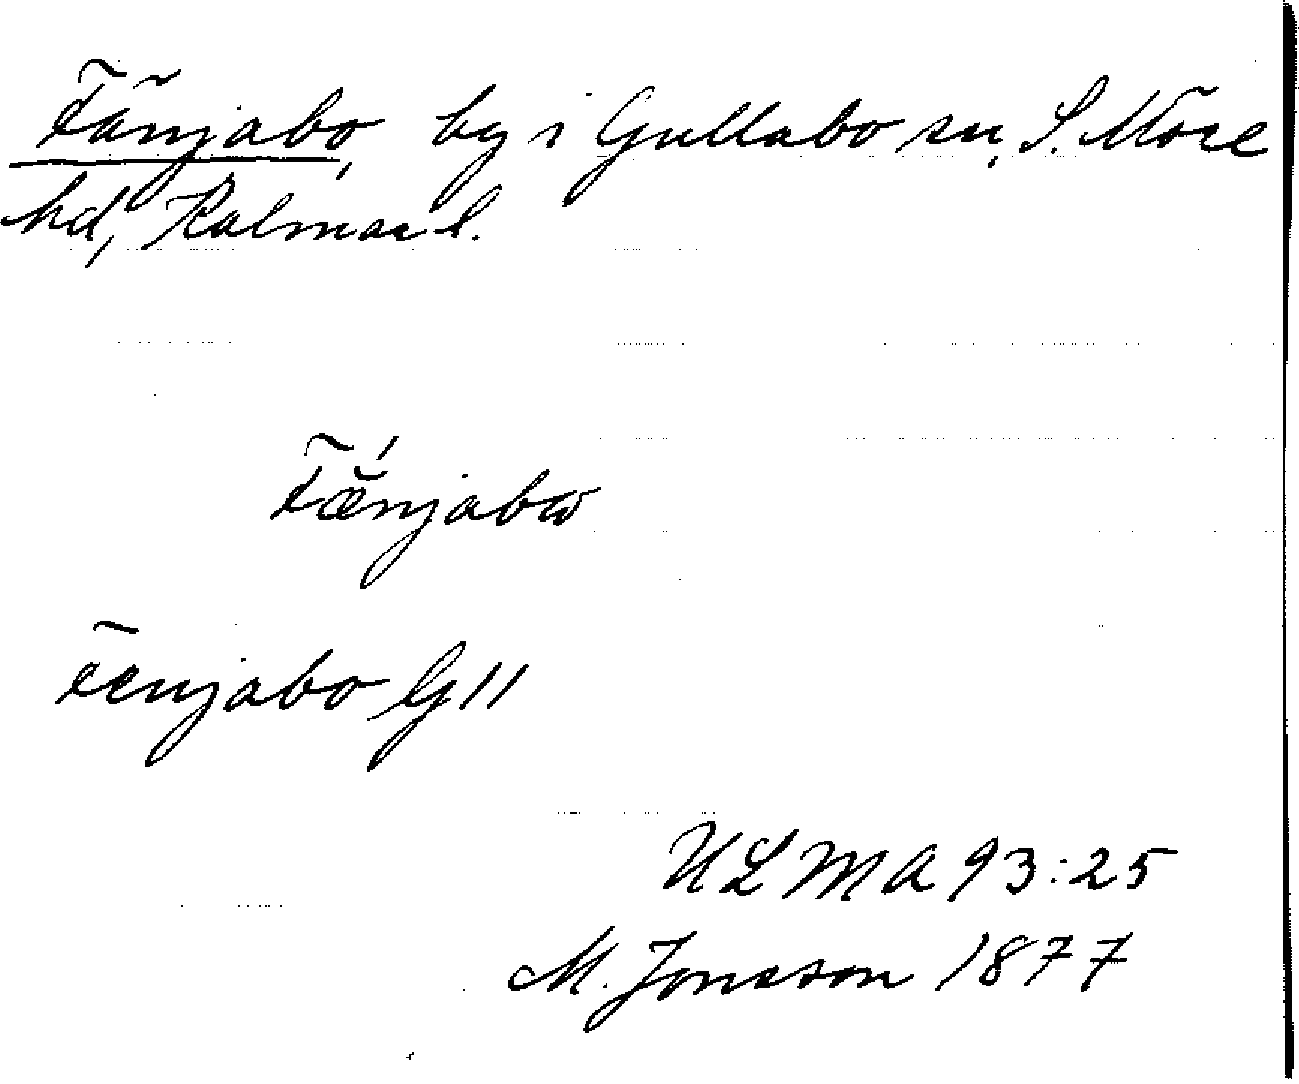 Fänjabo, by i Gullabo sn, S. Möre
hd, Kalmar l.
Fǽnjabω
Fenjabo G 11
ULMA 93:25
M. Jonsson 1877